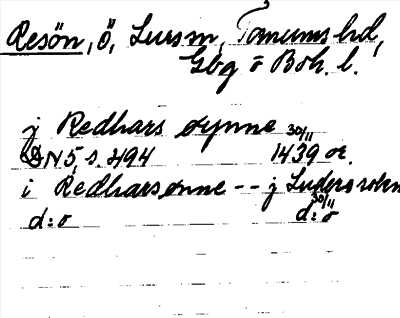 Resön, ö, Lursm, Tanums hd,
Gbg o Boh. l.
j Redhars øynne 30/11
DN 5, s. 494 1439 or.
i Redharsønne -- j Luders sokn
d:o 30/11 d:o